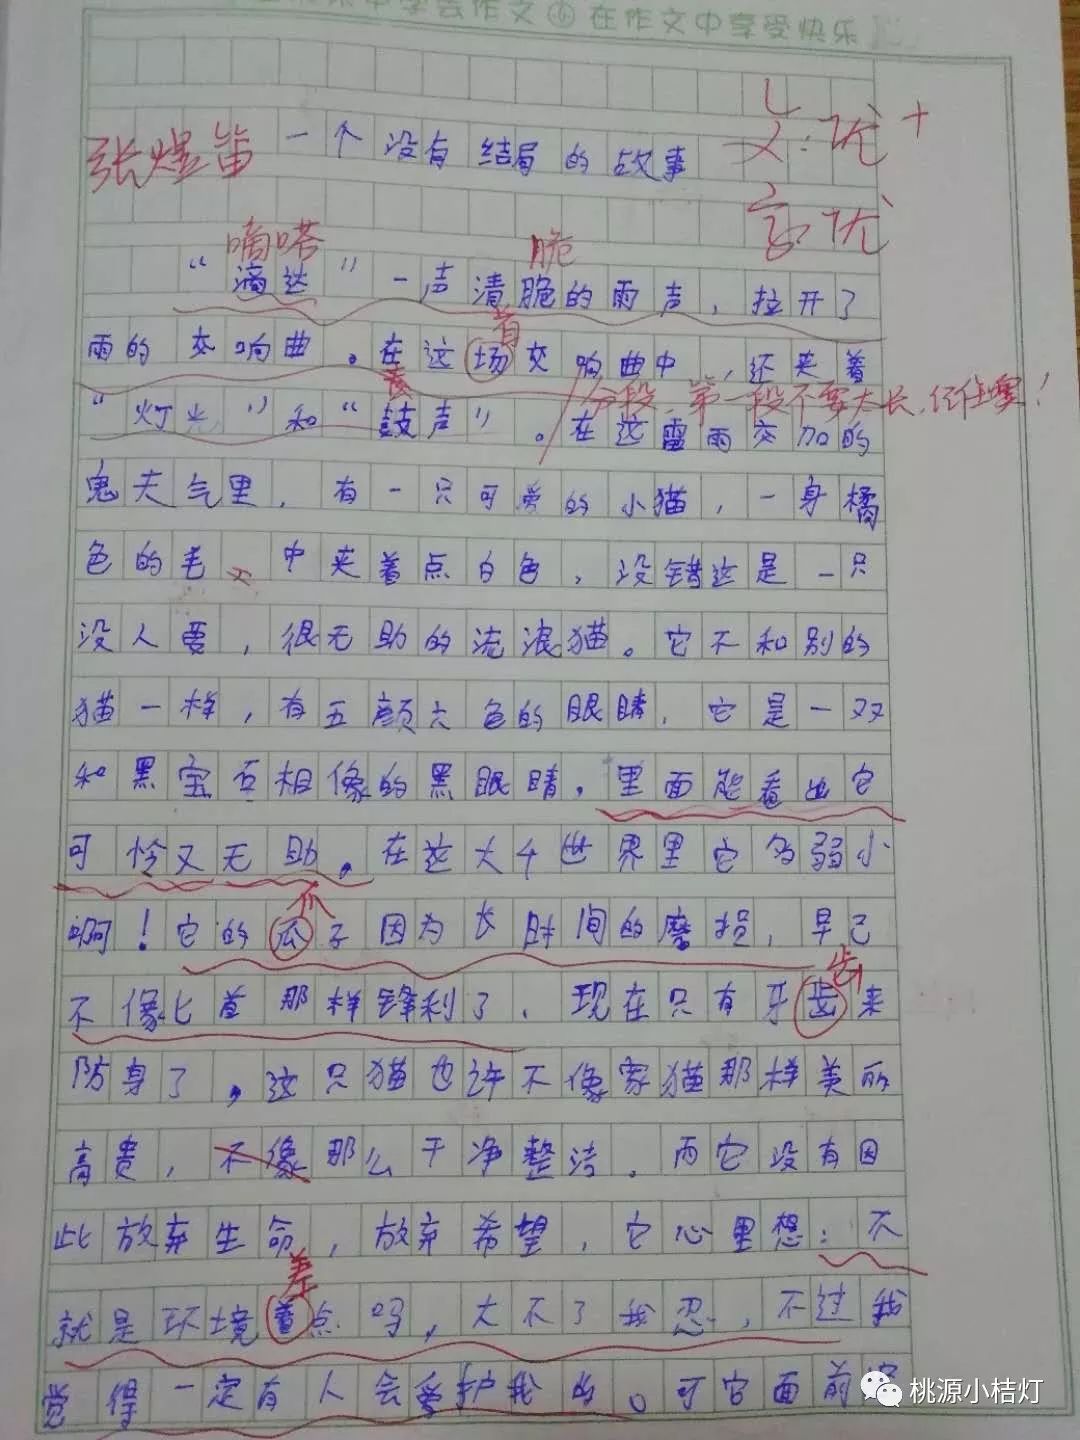 中学会作文⑥在作文中享受快乐
张煜笛 一个没有结局的故事 文:优+
字优
嘀嗒 脆
“滴达”一声清脆的雨声，拉开了
音
雨的交响曲。在这场交响曲中，还夹着
分段,第一段不要太长,
“灯光”和“鼓声”。在这雷雨交加的
鬼天气里，有一只可爱的小猫，一身橘
色的毛中夹着点白色，没错这是一只
没人要，很无助的流浪猫。它不和别的
猫一样，有五颜六色的眼睛，它是一双
和黑宝石相像的黑眼睛，里面能看出它
可怜又无助。在这大千世界里它多弱小
爪
啊！它的瓜子因为长时间的磨损，早已
齿
不像匕首那样锋利了，现在只有牙齿来
防身了，这只猫也许不像家猫那样美丽
高贵，不像那么干净整洁。而它没有因
此放弃生命，放弃希望，它心里想：不
差
就是环境着点吗，大不了我忍，不过我
觉得一定有人会爱护我的。可它面前
桃源小桔灯